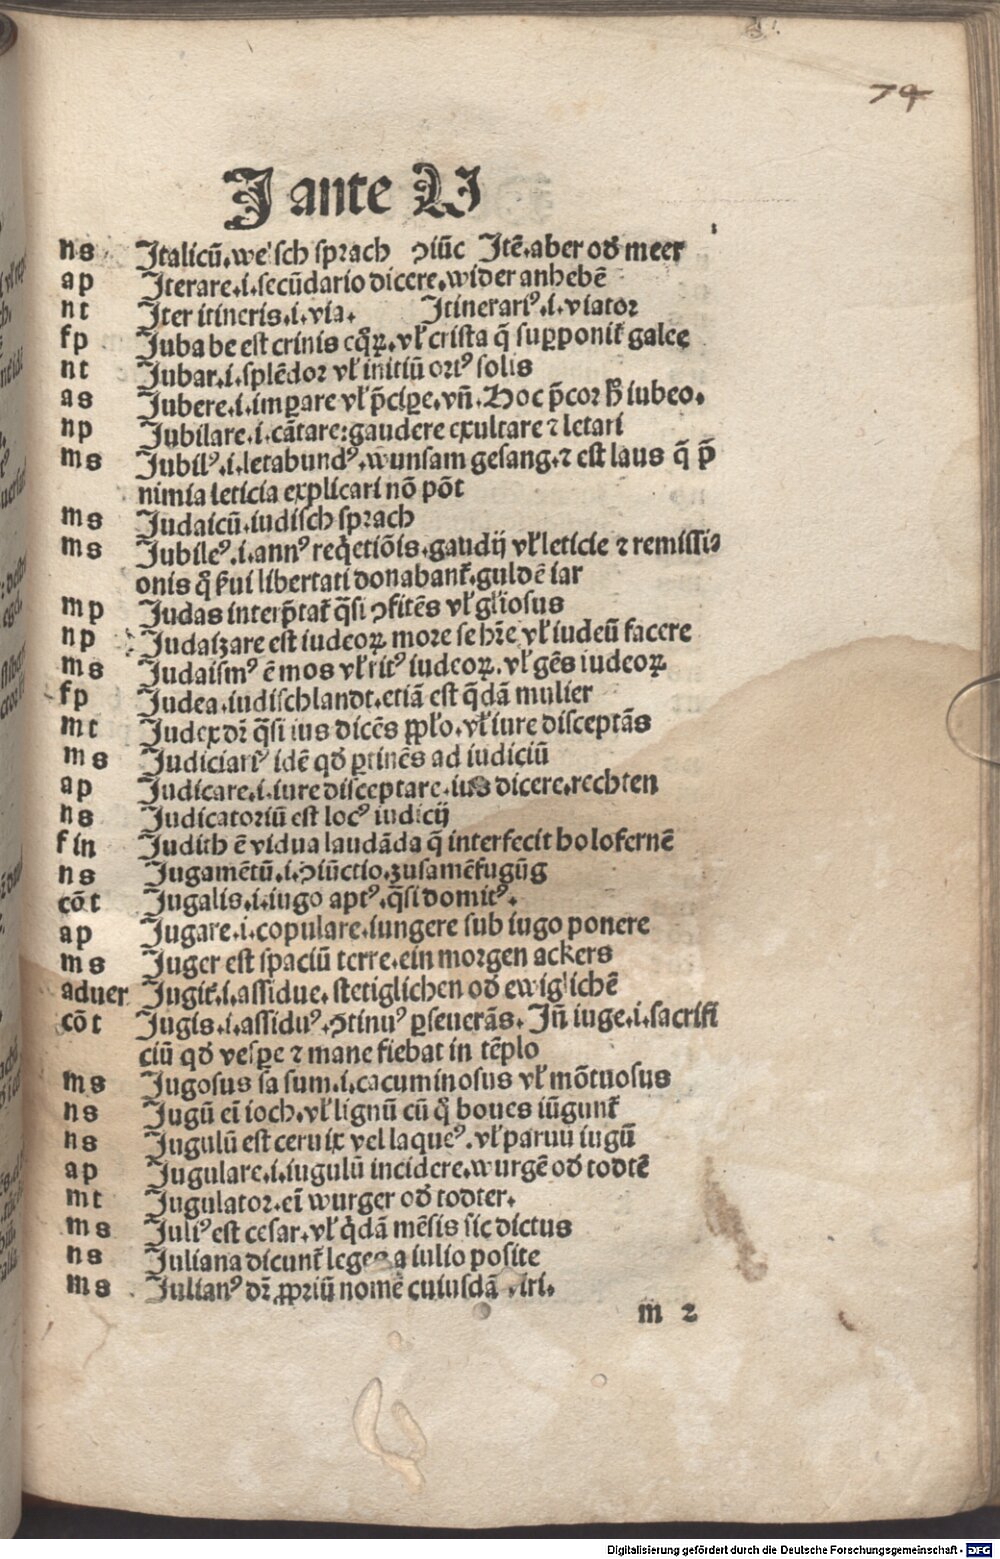 74
J ante U
ns Italicū.welsch sprach ꝯiūc Itē.aber oď meer
ap Iterare.i.secūdario dicere.wider anhebē
nt Iter itineris.i.via. Itinerariꝰ.i.viator
fp Iuba be est crinis eqͦꝝ.vľ crista q̄ suꝑponit᷑ galee
nt Iubar.i.splēdor vľ initiū ortꝰ solis
as Iubere.i.imꝑare vľ p̄ciꝑe.vñ.Hoc p̄cor iubeo.
np Iubilare.i.cātare:gaudere exultare ⁊ letari
ms Iubilꝰ.i.letabundꝰ.wunsam gesang.⁊ est laus q̄ p̄
nimia leticia explicari nō pōt
ms Iudaicū.iudisch sprach
ms Iubileꝰ.i.annꝰ reqͥetiōis.gaudij vľ leticie ⁊ remissi⸗
onis qͦ ẜui libertati donabant᷑.guldē iar
mp Iudas interp̄tat᷑ q̄si ꝯfitēs vľ gľiosus
np Iudaizare est iudeoꝝ more se hr̄e vľ iudeū facere
ms Iudaismꝰ ē mos vľ ritꝰ iudeoꝝ.vľ gēs iudeoꝝ
fp Iudea.iudischlandt.etiā est q̄dā mulier
mt Iudex dr̄ q̄si ius dicēs ꝓpľo.vľ iure disceptās
ms Iudiciariꝰ idē qď ꝑtinēs ad iudiciū
ap Iudicare.i.iure disceptare.ius dicere.rechten
ns Iudicatoriū est locꝰ iudicij
fin Iudith ē vidua laudāda q̄ interfecit holofernē
ns Iugamētū.i.ꝯiūctio.zusamēfugūg
cōt Iugalis.i.iugo aptꝰ.q̄si domitꝰ.
ap Iugare.i.copulare.iungere sub iugo ponere
ms Iuger est spaciū terre.ein morgen ackers
aduer Iugit᷑.i.assidue.stetiglichen oď ewiglichē
cōt Iugis.i.assiduꝰ.ꝯtinuꝰ ꝑseuerās.Iñ iuge.i.sacrifi
ciū qď vesꝑe ⁊ mane fiebat in tēplo
ms Iugosus sa sum.i.cacuminosus vľ mōtuosus
ns Iugū eī ioch.vľ lignū cū qͦ boues iūgunt᷑
ns Iugulū est ceruix vel laqueꝰ.vľ paruū iugū
ap Iugulare.i.iugulū incidere.wurgē oď todtē
mt Iugulator.eī wurger oď todter.
ms Iuliꝰ est cesar.vľ qͥdā mēsis sic dictus
ns Iuliana dicunt᷑ leges a iulio posite
ms Iulianꝰ dr̄ ꝓpriū nomē cuiusdā viri.
m 2
Digitalisierung gefördert durch die Deutsche Forschungsgemeinschaft - DFG